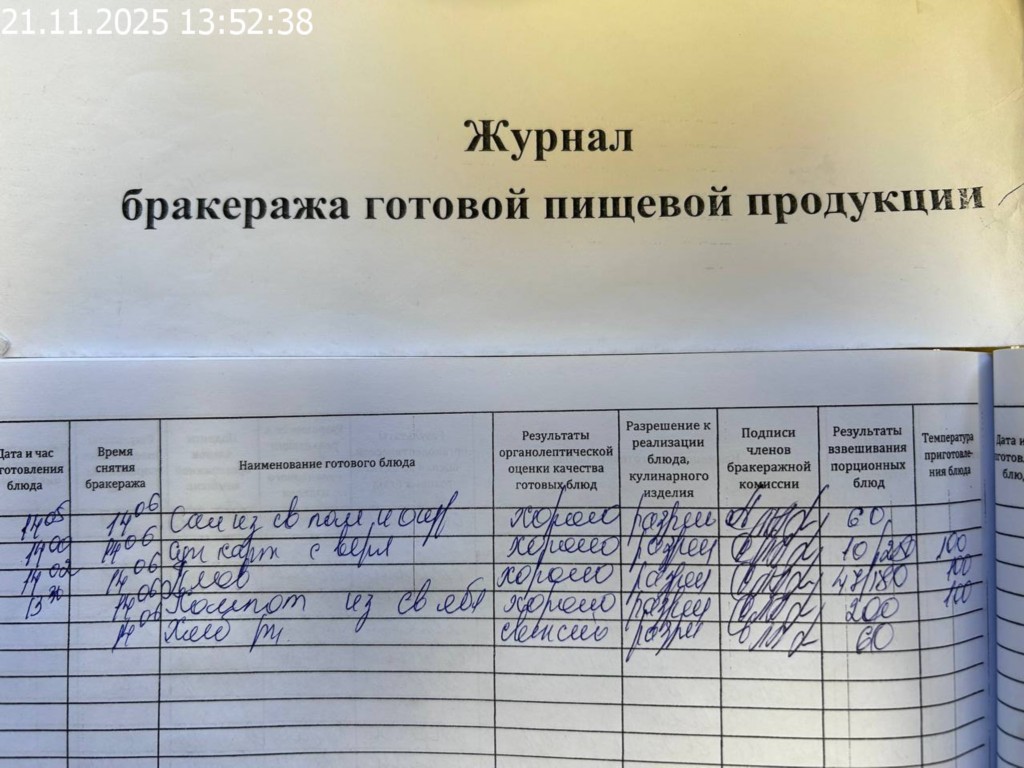 21.11.2025 13:52:38
Журнал
бракеража готовой пищевой продукции
Дата и час готовления блюда
Время снятия бракеража
Наименование готового блюда
Результаты органолептической оценки качества готовых блюд
Разрешение к реализации блюда, кулинарного изделия
Подписи членов бракеражной комиссии
Результаты взвешивания порционных блюд
Температура приготовле-ния блюда
14 05 14 06 Сал из св пом и огур хорошо разреш 60
14 00 14 06 Суп карт с верм хорошо разреш 10/250 100
14 02 14 06 Плов хорошо разреш 100
13 30 14 06 Компот из св ябл хорошо разреш 200 100
14 06 Хлеб рж. разреш 60